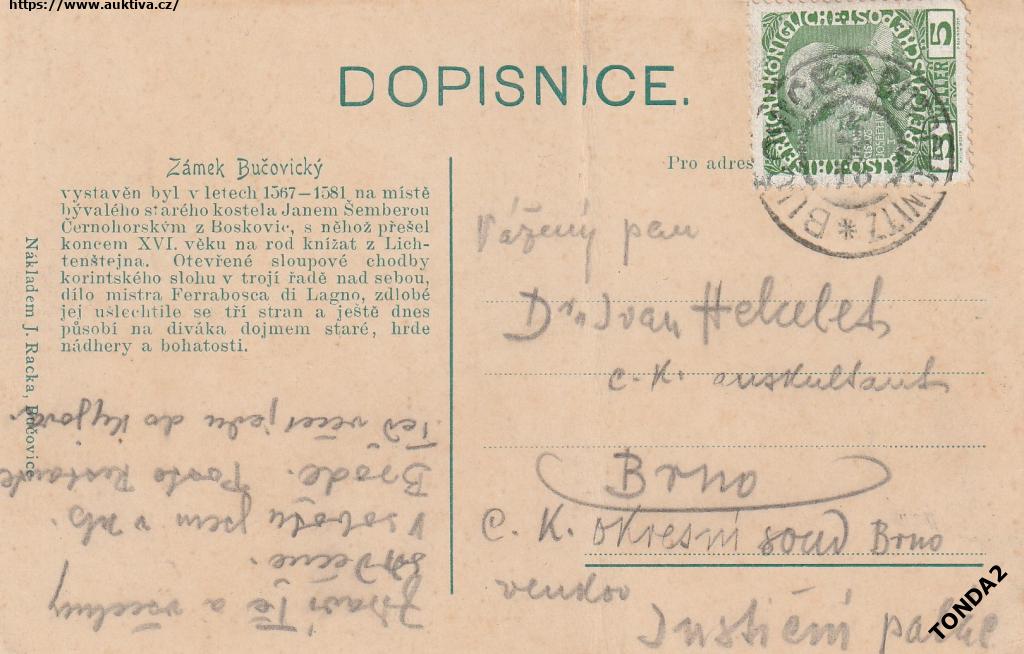 https://www.auktiva.cz/
DOPISNICE.
Zámek Bučovický
vystavěn byl v letech 1567—1581 na místě
bývalého starého kostela Janem Šemberou
Černohorským z Boskovic, s něhož přešel
koncem XVI. věku na rod knížat z Lich-
tenštejna. Otevřené sloupové chodby
korintského slohu v trojí řadě nad sebou,
dílo mistra Ferrabosca di Lagno, zdlobé
jej ušlechtile se tří stran a ještě dnes
působí na diváka dojmem staré, hrdé
nádhery a bohatosti.
Nákladem J. Racka, Bučovice
Pro adres
5 HELLER 5
Vážený pan
Dr. Ivan Helcelet
c. k. auskultant
Brno
C. K. okresní soud Brno
venkov
Justiční palác
Zdraví Tě a všechny
srdečně.
V sobotu jsem v Uh.
Brodě. Poste Restante
Teď večer jedu do Kyjova.
TONDA2